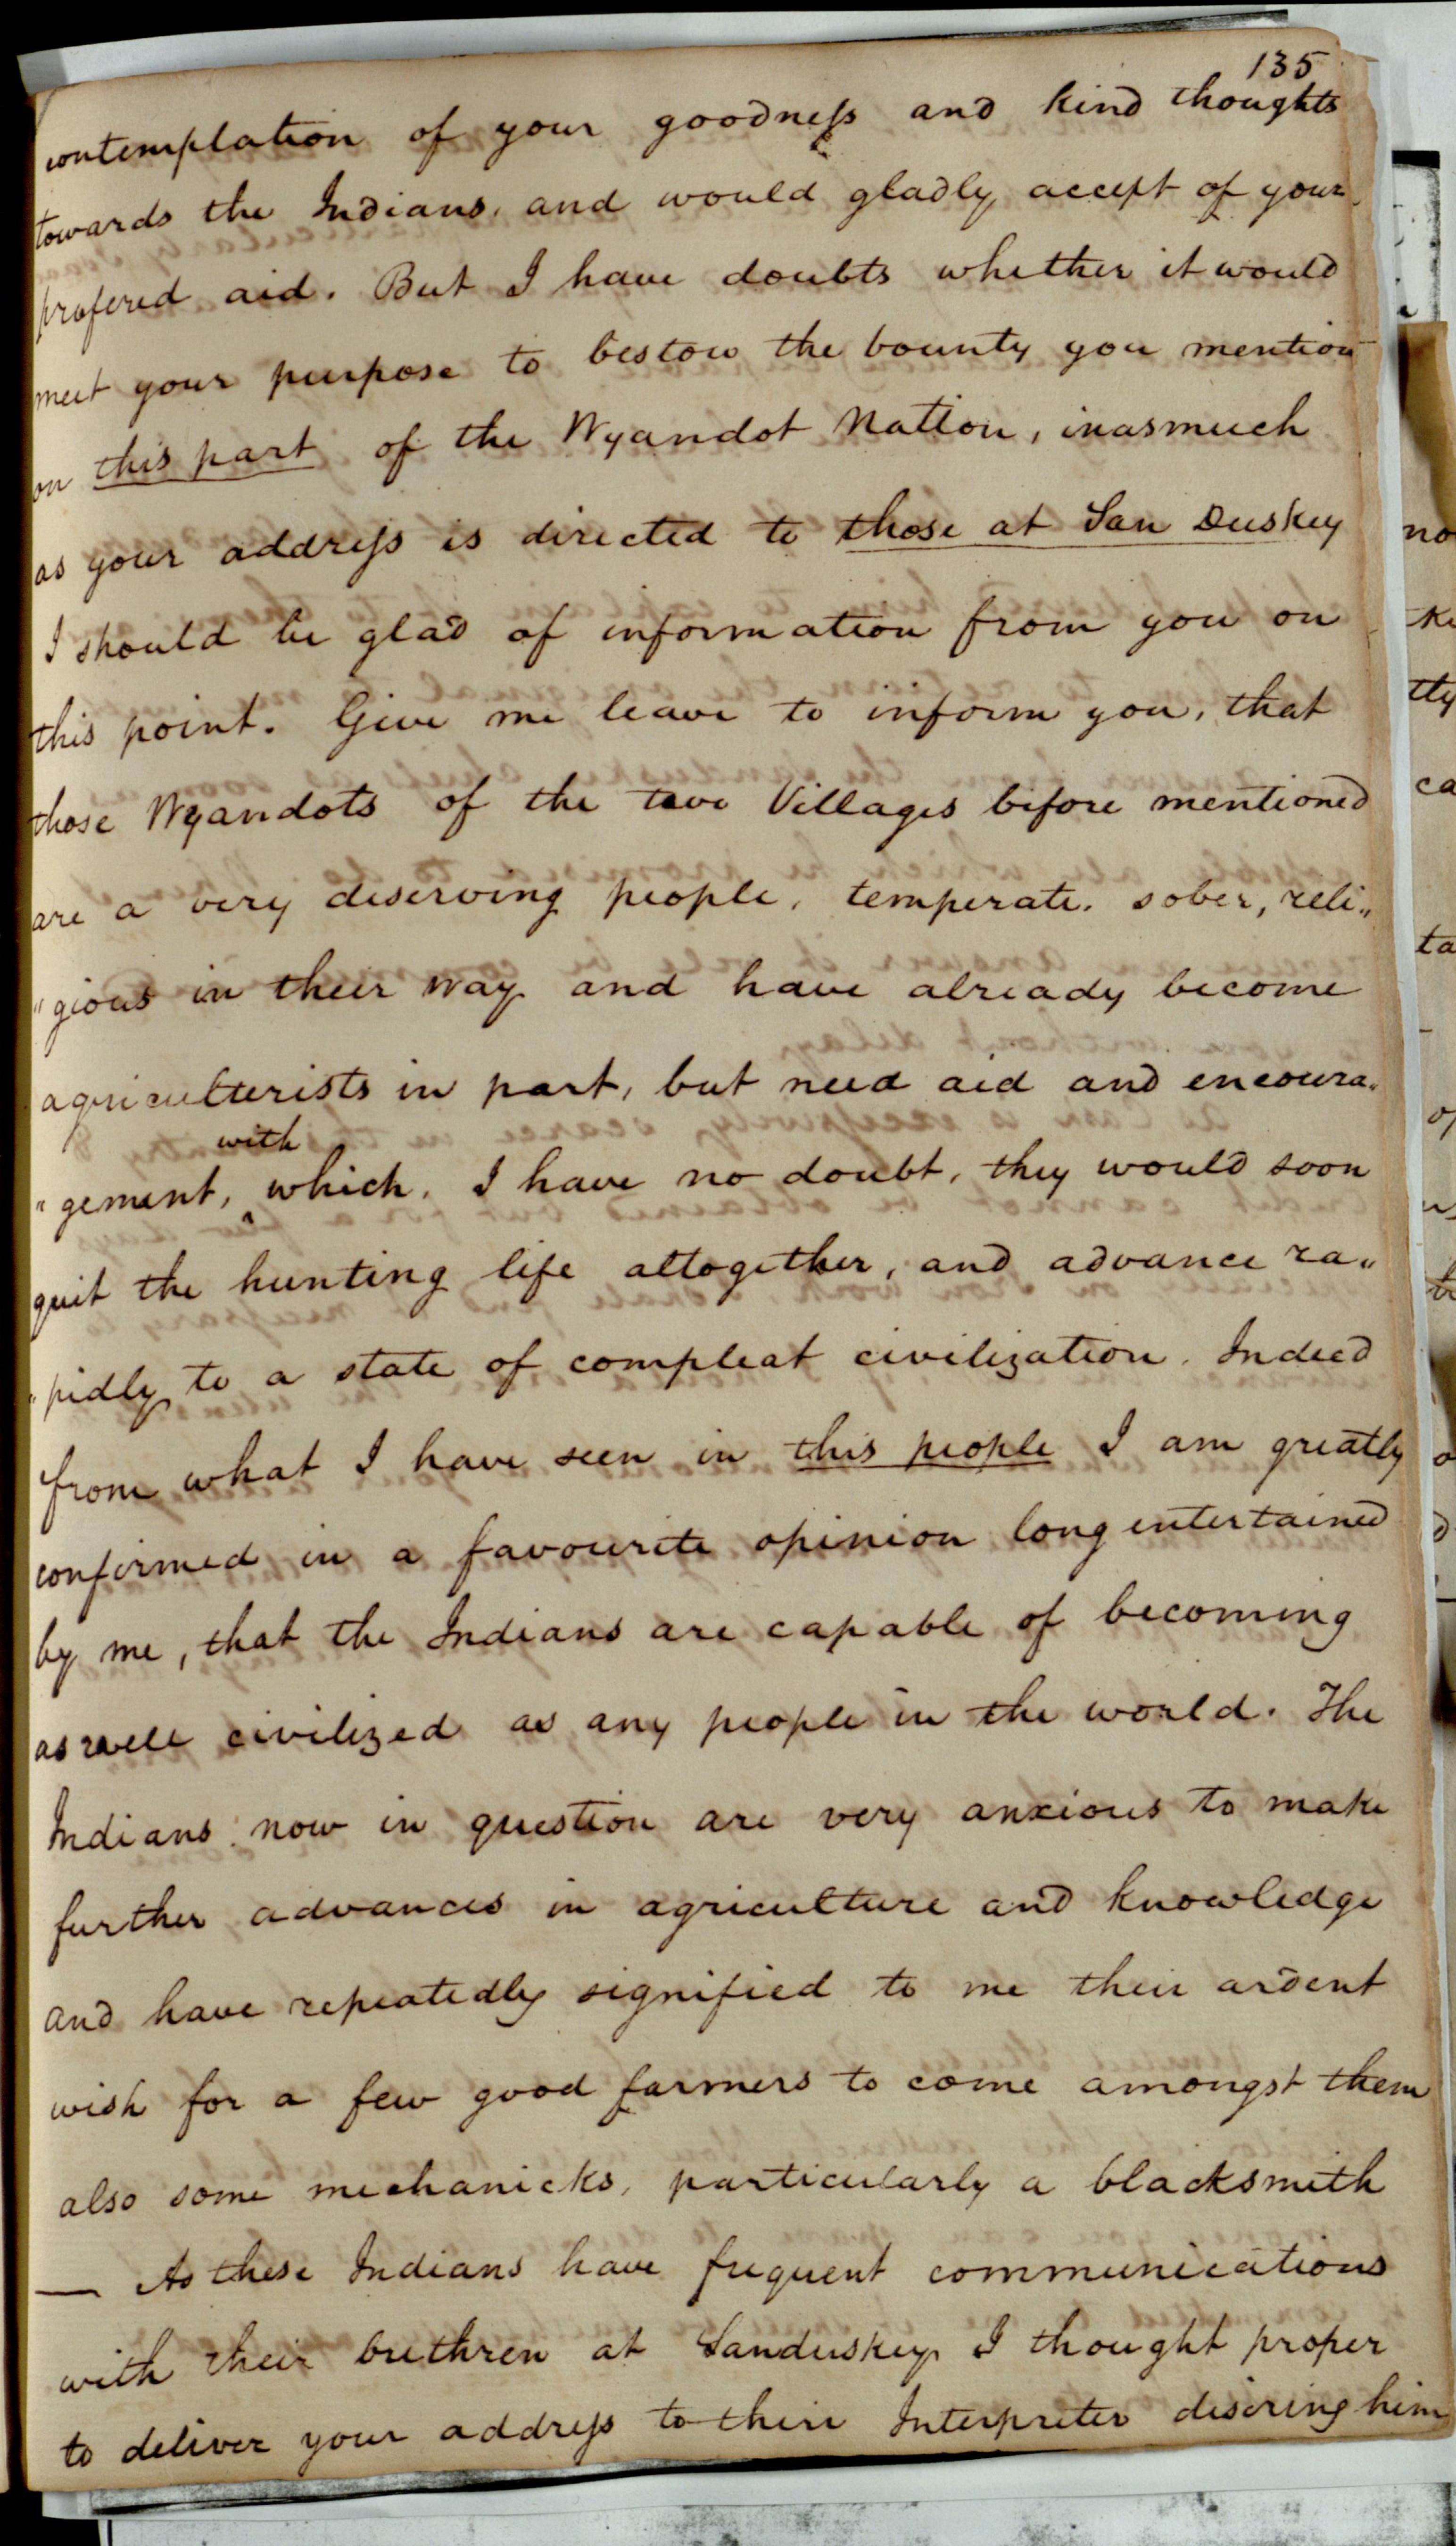 135
contemplation of your goodneſs and kind thoughts
towards the Indians, and would gladly accept of your
profered aid. But I have doubts whether it would
meet your purpose to bestow the bounty you mention
on this part of the Wyandot Nation, inasmuch
as your addreſs is directed to those at San Duskey
I should be glad of information from you on
this point. Give me leave to inform you, that
those Wyandots of the two Villages before mentioned
are a very deserving people, temperate, sober, reli„
„gious in their way and have already become
agriculturists in part, but need aid and encoura„
with
„gement, ‸ which, I have no doubt, they would soon
quit the hunting life altogether, and advance ra„
„pidly to a state of compleat civilization. Indeed
from what I have seen in this people I am greatly
confirmed in a favourite opinion long entertained
by me, that the Indians are capable of becoming
as well civilized as any people in the world. The
Indians now in question are very anxious to make
further advances in agriculture and knowledge
and have repeatedly signified to me their ardent
wish for a few good farmers to come amongst them
also some mechanicks, particularly a blacksmith
— As these Indians have frequent communications
with their brethren at Sanduskey I thought proper
to deliver your addreſs to their Interpreter desering him